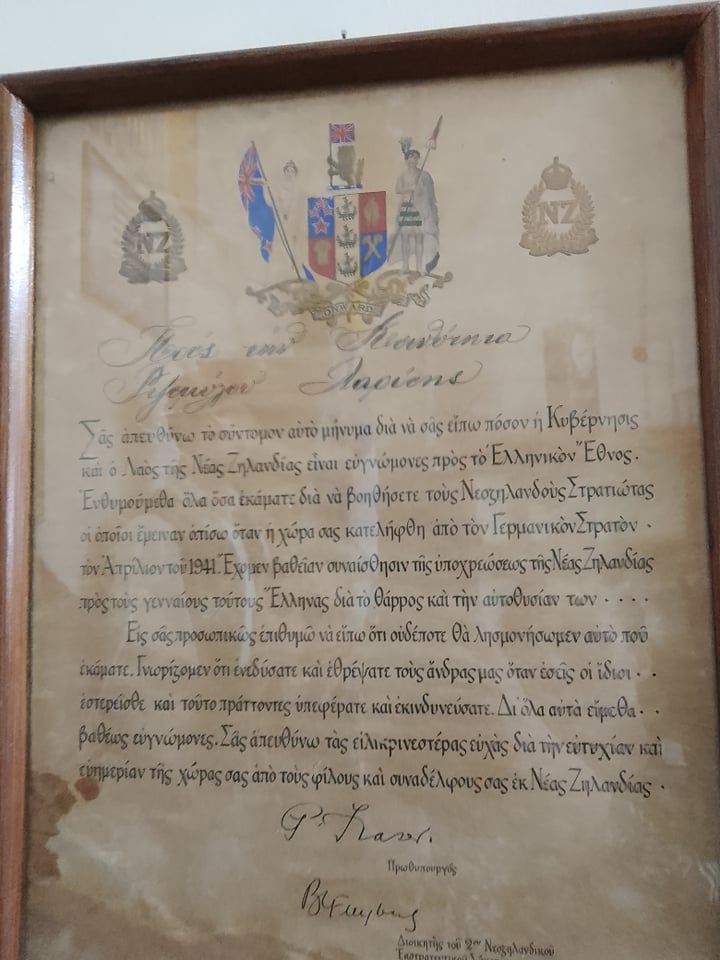 NZ
NZ
ONWARD
Πρὸς τὴν Κοινότητα
Λαρίσης
Σᾶς ἀπευθύνω τὸ σύντομον αὐτὸ μήνυμα διὰ νὰ σᾶς εἴπω πόσον ἡ Κυβέρνησις
καὶ ὁ Λαὸς τῆς Νέας Ζηλανδίας εἶναι εὐγνώμονες πρὸς τὸ Ἑλληνικὸν Ἔθνος.
Ἐνθυμούμεθα ὅλα ὅσα ἐκάματε διὰ νὰ βοηθήσετε τοὺς Νεοζηλανδοὺς Στρατιώτας
οἱ ὁποῖοι ἔμειναν ὀπίσω ὅταν ἡ χώρα σας κατελήφθη ἀπὸ τὸν Γερμανικὸν Στρατὸν ·
τὸν Ἀπρίλιον τοῦ 1941. Ἔχομεν βαθεῖαν συναίσθησιν τῆς ὑποχρεώσεως τῆς Νέας Ζηλανδίας
πρὸς τοὺς γενναίους τούτους Ἕλληνας διὰ τὸ θάρρος καὶ τὴν αὐτοθυσίαν των · · · ·
Εἰς σᾶς προσωπικῶς ἐπιθυμῶ νὰ εἴπω ὅτι οὐδέποτε θὰ λησμονήσωμεν αὐτὸ ποῦ
ἐκάματε. Γνωρίζομεν ὅτι ἐνεδύσατε καὶ ἐθρέψατε τοὺς ἄνδρας μας ὅταν ἐσεῖς οἱ ἴδιοι · ·
ἐστερεῖσθε καὶ τοῦτο πράττοντες ὑπεφέρατε καὶ ἐκινδυνεύσατε. Δι' ὅλα αὐτὰ εἴμεθα · ·
βαθέως εὐγνώμονες. Σᾶς ἀπευθύνω τὰς εἰλικρινεστέρας εὐχὰς διὰ τὴν εὐτυχίαν καὶ
εὐημερίαν τῆς χώρας σας ἀπὸ τοὺς φίλους καὶ συναδέλφους σας ἐκ Νέας Ζηλανδίας ·
P. Fraser.
Πρωθυπουργός
B Freyberg
Διοικητὴς τοῦ 2ου Νεοζηλανδικοῦ
Ἐκστρατευτικοῦ